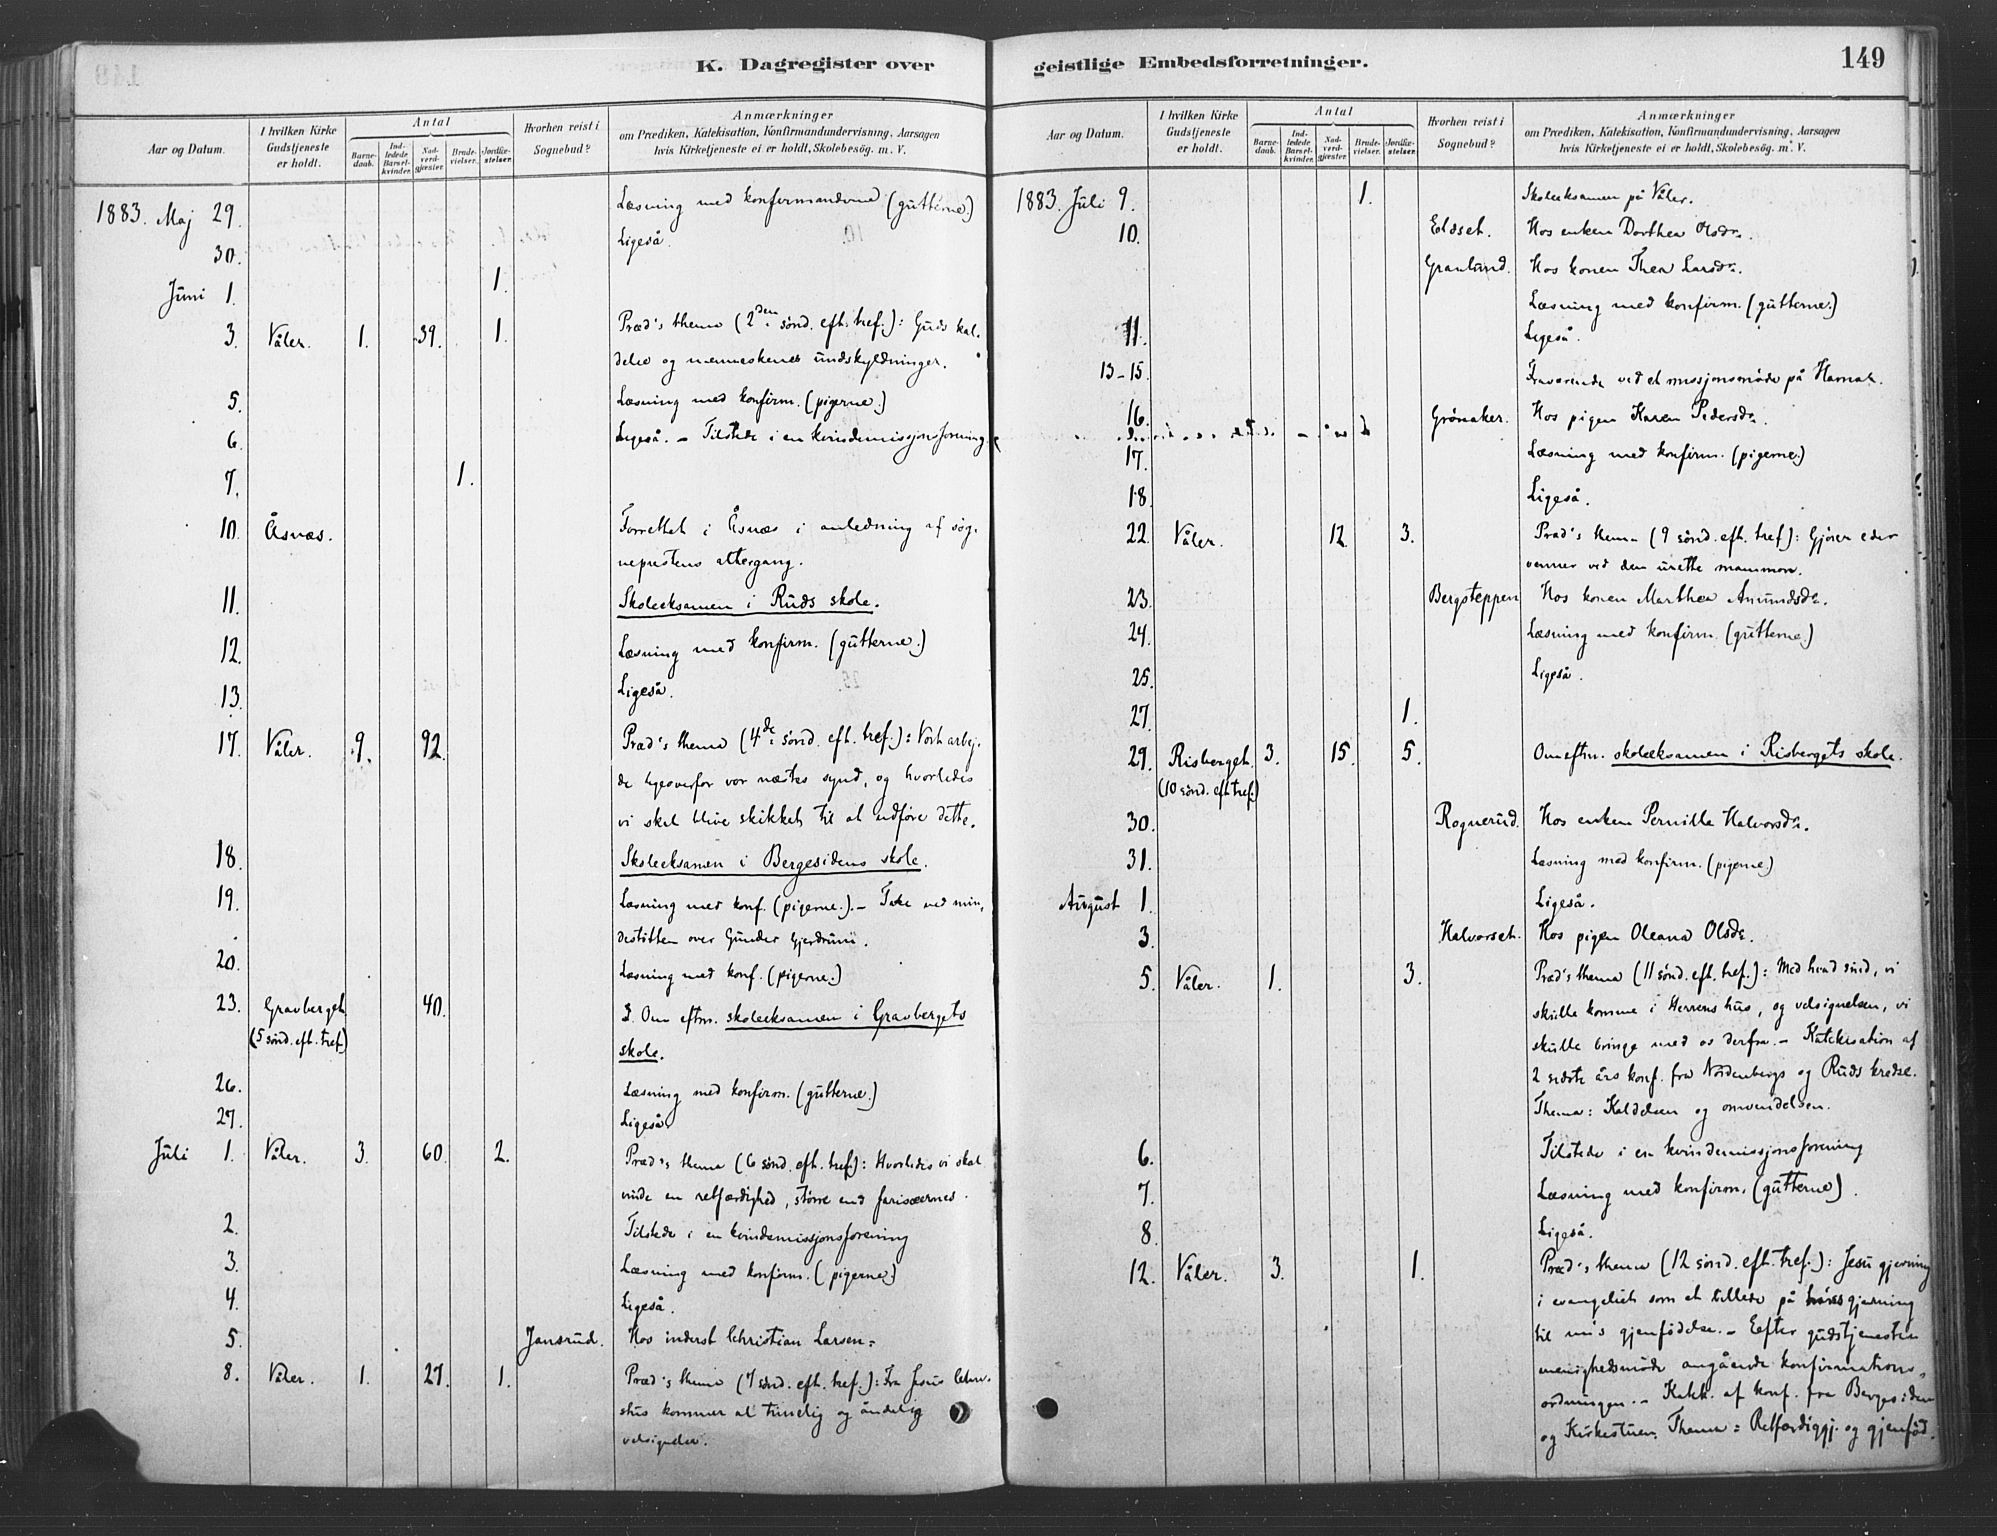 K. Dagregister over
Aar og Datum. I hvilken Kirke Gudstjeneste er holdt. Antal Barnedaab. Indledede Barselkvinder. Nadverdgjester. Brudevielser. Jordfæstelser. Hvorhen reist i Sognebud? Anmærkninger om Prædiken, Katekisation, Konfirmandundervisning, Aarsagen hvis Kirketjeneste ei er holdt, Skolebesøg. m. V.
1883. Maj 29. Læsning med konfirmanderne (gutterne.)
30. Ligeså.
Juni 1. 1.
3. Våler. 1. 39. 1. Præd's thema (2den sønd. eft. tref.): Guds kal-
delse og menneskenes undskyldninger.
5. Læsning med konfirm. (pigerne.)
6. Ligeså. – Tilstede i en kvindemissjonsforening.
7. 1.
10. Åsnæs. Forrettet i Åsnæs i anledning af sog-
neprestens attergang.
11. Skoleeksamen i Ruds skole.
12. Læsning med konfirm. (gutterne.)
13. Ligeså.
17. Våler. 9. 92. Præd's thema (4de sønd. eft. tref.): Vort arbej-
de ligeoverfor vor næstes synd, og hvorledes
vi skal blive skikket til at udføre dette.
18. Skoleeksamen i Bergesidens skole.
19. Læsning med konf. (pigerne.). – Tale ved min-
destøtten over Gunder Gjerdrum.
20. Læsning med konf. (pigerne.)
23. Gravberget 40. Om eftm. skoleeksamen i Gravbergets
(5 sønd. eft. tref.) skole.
26. Læsning med konfirm. (gutterne.)
27. Ligeså.
Juli 1. Våler. 3. 60. 2. Præd's thema (6 sønd. eft. tref.): Hvorledes vi skal
vinde en retfærdighed, større end farisæernes.
2. Tilstede i en kvindemissjonsforening
3. Læsning med konfirm. (pigerne.)
4. Ligeså.
5. Jansrud. Hos inderst Christian Larsen.
8. Våler. 1. 27. 1. Præd's thema (7 sønd. eft. tref.): Fra Jesus Chri-
stus kommer al timelig og åndelig
velsignelse.
geistlige Embedsforretninger. 149
Aar og Datum. I hvilken Kirke Gudstjeneste er holdt. Antal Barnedaab. Indledede Barselkvinder. Nadverdgjester. Brudevielser. Jordfæstelser. Hvorhen reist i Sognebud? Anmærkninger om Prædiken, Katekisation, Konfirmandundervisning, Aarsagen hvis Kirketjeneste ei er holdt, Skolebesøg. m. V.
1883. Juli 9. 1. Skoleeksamen på Våler.
10. Eidset. Hos enken Dorthea Olsdr.
Granlund. Hos konen Thea Larsdr.
Læsning med konfirm. (gutterne.)
11. Ligeså.
13–15. Fraværende ved et missjonsmøde på Hamar.
16. Grønaker. Hos pigen Karen Pedersdr.
17. Læsning med konfirm. (pigerne.)
18. Ligeså.
22. Våler. 12. 3. Præd's thema (9 sønd. eft. tref.): Gjører eder
venner ved den urette mammon.
23. Bergsteppen Hos konen Marthea Amundsdr.
24. Læsning med konfirm. (gutterne.)
25. Ligeså.
27. 1.
29. Risberget 3. 15. 5. Om eftm. skoleeksamen i Risbergets skole.
(10 sønd. eft. tref.)
30. Rognerud. Hos enken Pernille Halvorsdr.
31. Læsning med konfirm. (pigerne)
August 1. Ligeså.
3. Halvorset. Hos pigen Oleana Olsdr.
5. Våler. 1. 3. Præd's thema (11 sønd. eft. tref.): Med hvad sind, vi
skulle komme i Herrens hus, og velsignelsen, vi
skulle bringe med os derfra. – Katekisation af
2 sidste års konf. fra Nordenbergs og Ruds kredse.
Thema: Kaldelsen og omvendelsen.
6. Tilstede i en kvindemissjonsforening
7. Læsning med konfirm. (gutterne).
8. Ligeså.
12. Våler. 3. 1. Præd's thema (12 sønd. eft. tref.): Jesu gjerning
i evangeliet som et billede på gjerning
til gjenfødelse. – Eefter gudstjenesten
menighedsmøde angående konfirmations-
ordningen. – Katek. af konf. fra Bergesiden
og Kirkestuen. Thema: Retfærdiggj. og gjenfød.